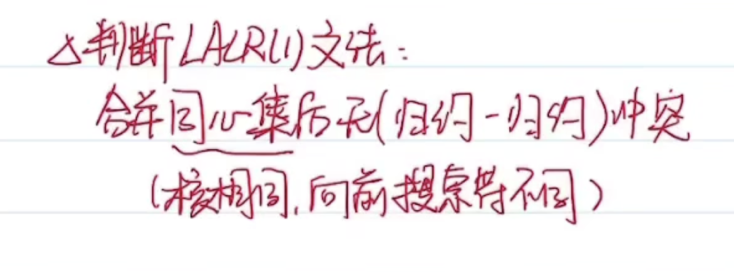 △判断LALR(1)文法：
合并同心集后无(归约-归约)冲突
(核相同,向前搜索符不同)